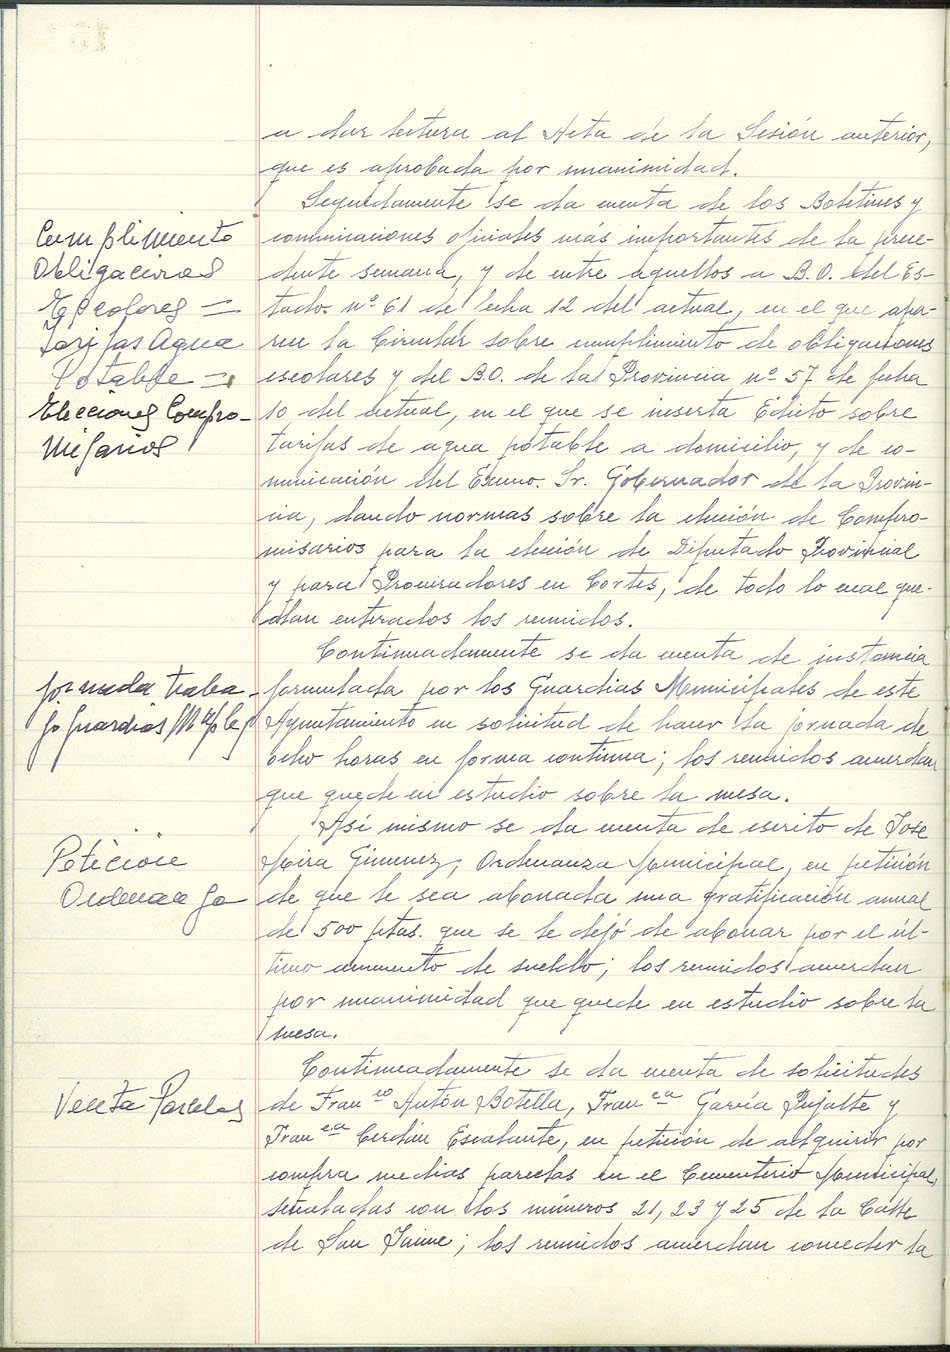 a dar lectura al Acta de la Sesión anterior,
que es aprobada por unanimidad.
Seguidamente se da cuenta de los Boletines y
Cumplimiento
comunicaciones oficiales más importantes de la prece-
Obligaciones
dente semana, y de entre aquellos a B.O. del Es-
Escolares =
tado nº 61 de fecha 12 del actual, en el que apa-
Tarifas Agua
rece la Circular sobre cumplimiento de obligaciones
Potable =
escolares y del B.O. de la Provincia nº 57 de fecha
Elecciones Compro-
10 del actual, en el que se inserta Edicto sobre
misarios
tarifas de agua potable a domicilio, y de co-
municación del Excmo. Sr. Gobernador de la Provin-
cia, dando normas sobre la elección de Compro-
misarios para la elección de Diputado Provincial
y para Procuradores en Cortes, de todo lo cual que-
dan enterados los reunidos.
Continuadamente se da cuenta de instancia
Jornada traba-
formulada por los Guardias Municipales de este
jo guardias Mples
Ayuntamiento en solicitud de hacer la jornada de
ocho horas en forma continua; los reunidos acuerdan
que quede en estudio sobre la mesa.
Así mismo se da cuenta de escrito de José
Petición
Mira Gimenez, Ordenanza Municipal, en petición
Ordenanza
de que le sea abonada una gratificación anual
de 500 ptas. que se le dejó de abonar por el úl-
timo aumento de sueldo; los reunidos acuerdan
por unanimidad que quede en estudio sobre la
mesa.
Continuadamente se da cuenta de solicitudes
Venta Parcelas
de Franco Antón Botella, Franca García Pujalte y
Franca Cerdán Escalante, en petición de adquirir por
compra medias parcelas en el Cementerio Municipal,
señaladas con los números 21, 23 y 25 de la Calle
de San Jaime; los reunidos acuerdan conceder la